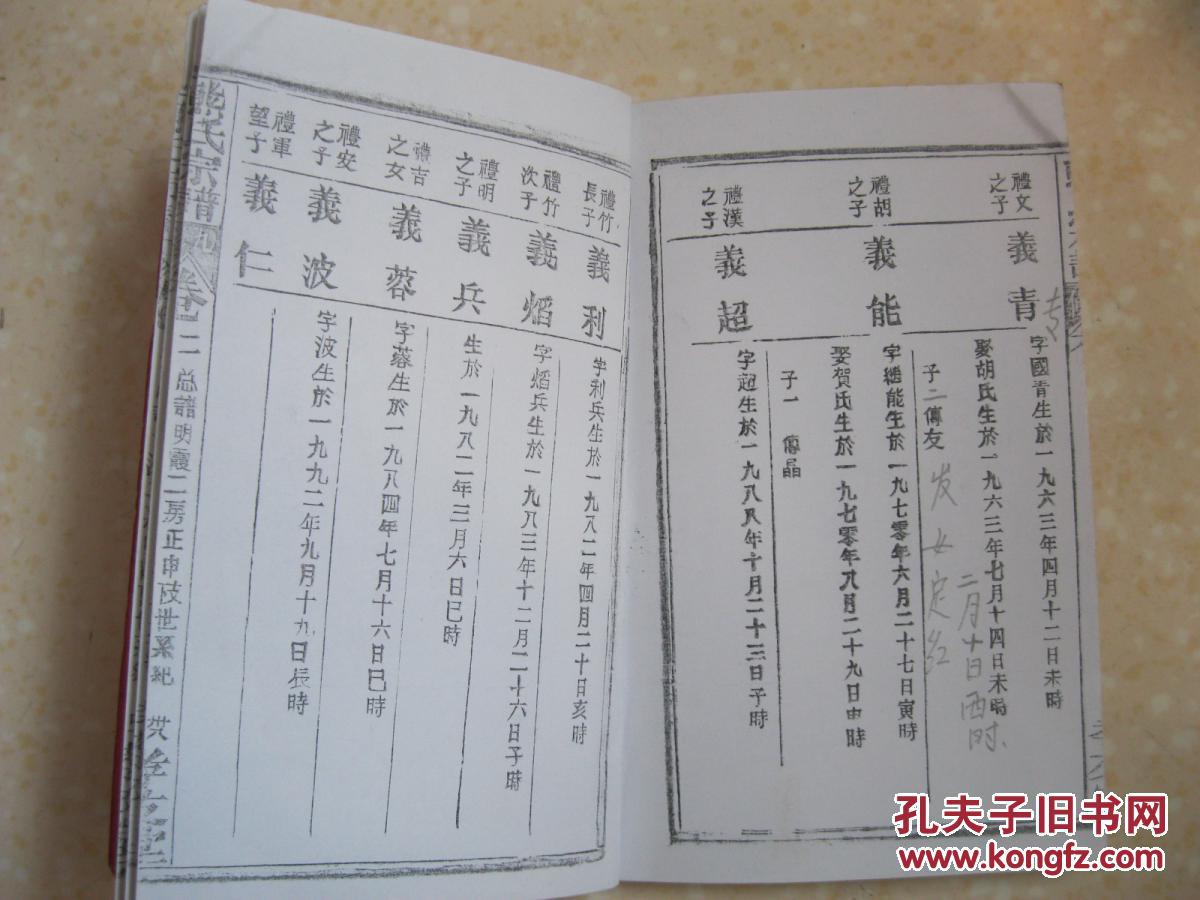 禮文
之子
義青
字國青生於一九六三年四月十二日未時
娶胡氏生於一九六三年七月十四日未時
二月十日酉时
子二傳友
发 女定红
禮胡
之子
義能
字繼能生於一九七零年六月二十七日寅時
娶賀氏生於一九七零年八月二十九日申時
子一 傳晶
禮漢
之子
義超
字超生於一九八八年十月二十三日子時
禮竹
長子
義利
字利兵生於一九八二年四月二十日亥時
禮竹
次子
義熖
字熖兵生於一九八三年十二月二十六日子時
禮明
之子
義兵
生於一九八二年三月六日巳時
禮吉
之女
義蓉
字蓉生於一九八四年七月十六日巳時
禮安
之子
義波
字波生於一九九二年九月十九日辰時
禮軍
望子
義仁
氏宗譜
卷二 总譜明霞二房正申
孔夫子旧书网
www.kongfz.com